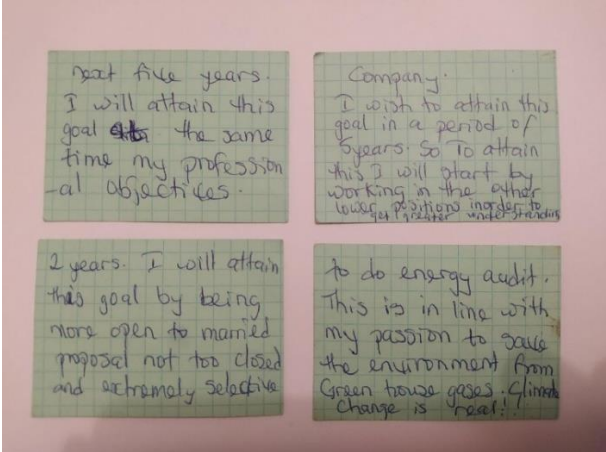 next five years.
I will attain this
goal the same
time my profession
-al objectives.
Company.
I wish to attain this
goal in a period of
5years. So To attain
this I will start by
working in the other
lower positions inorder to
get greater understanding
2 years. I will attain
this goal by being
more open to married
proposal not too closed
and extremely selective
to do energy audit.
This is in line with
my passion to save
the environment from
Green house gases. Climate
Change is real!!